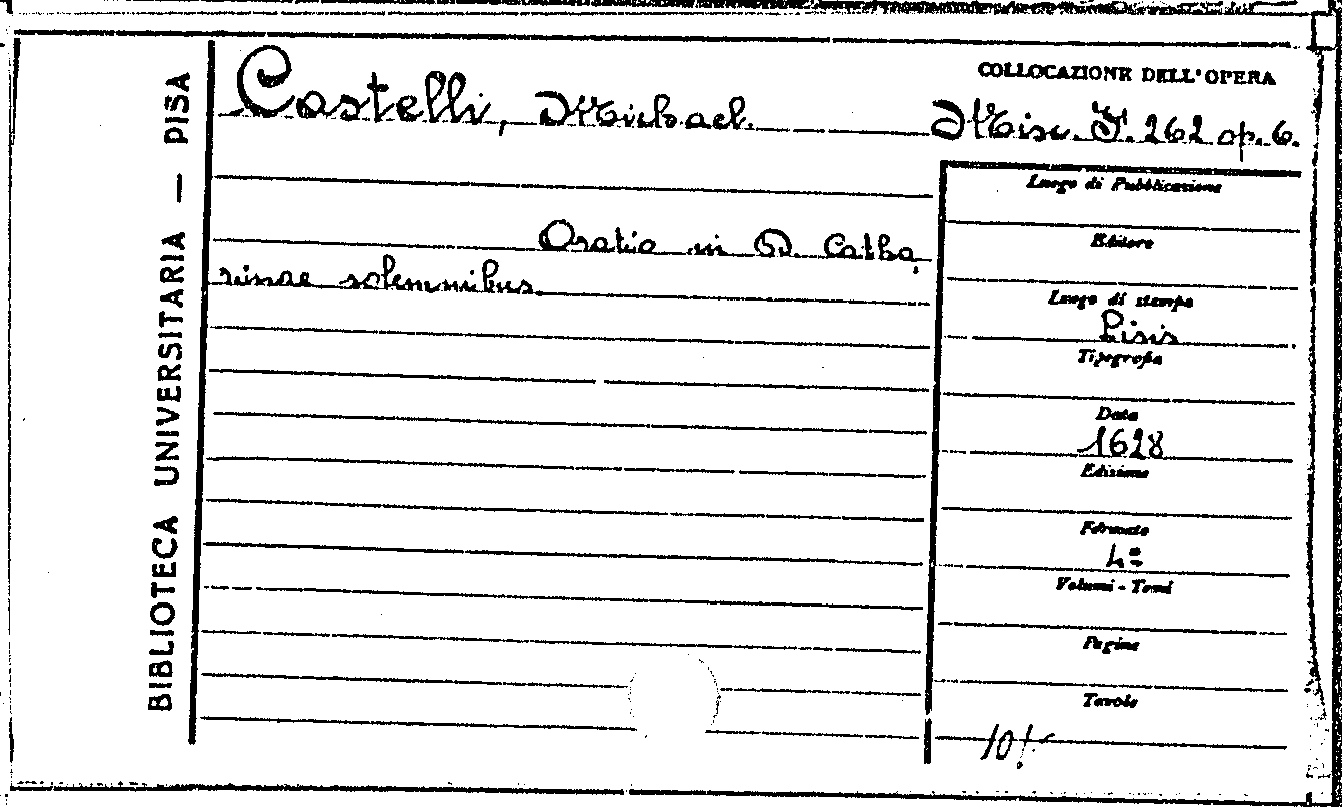 BIBLIOTECA UNIVERSITARIA — PISA
Castelli, Michael.
COLLOCAZIONE DELL'OPERA
Misc. F. 262 op. 6.
Oratio in D. Catha,
rinae solemnibus.
Luogo di Pubblicazione
Editore
Luogo di stampa
Pisis
Tipografia
Data
1628
Edizione
Formato
4º
Volumi - Tomi
Pagine
Tavole